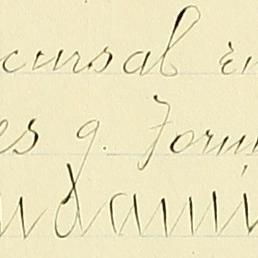 cursal en
es q. Form
ndami